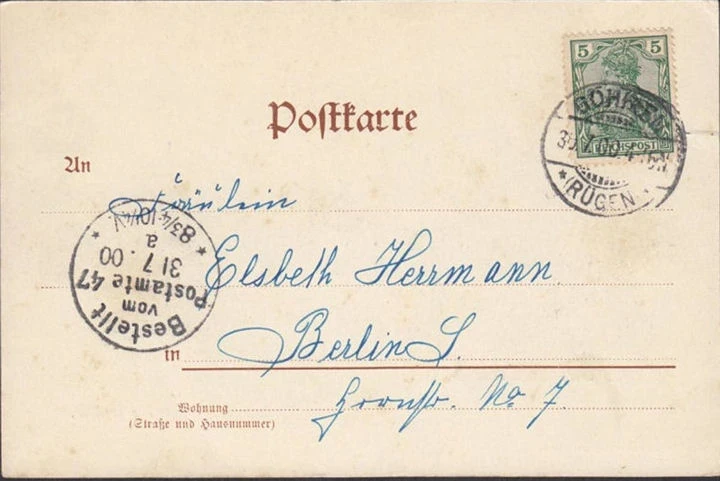 5 5
REICHSPOST
GÖHREN
* (RÜGEN) *
Postkarte
An
Fräulein
Elsbeth Herrmann
in Berlin S.
Wohnung
(Straße und Hausnummer)
No 7.
Bestellt
vom
Postamte 47
31 7. 00
a
* 8 3/4-10 1/4 V. *